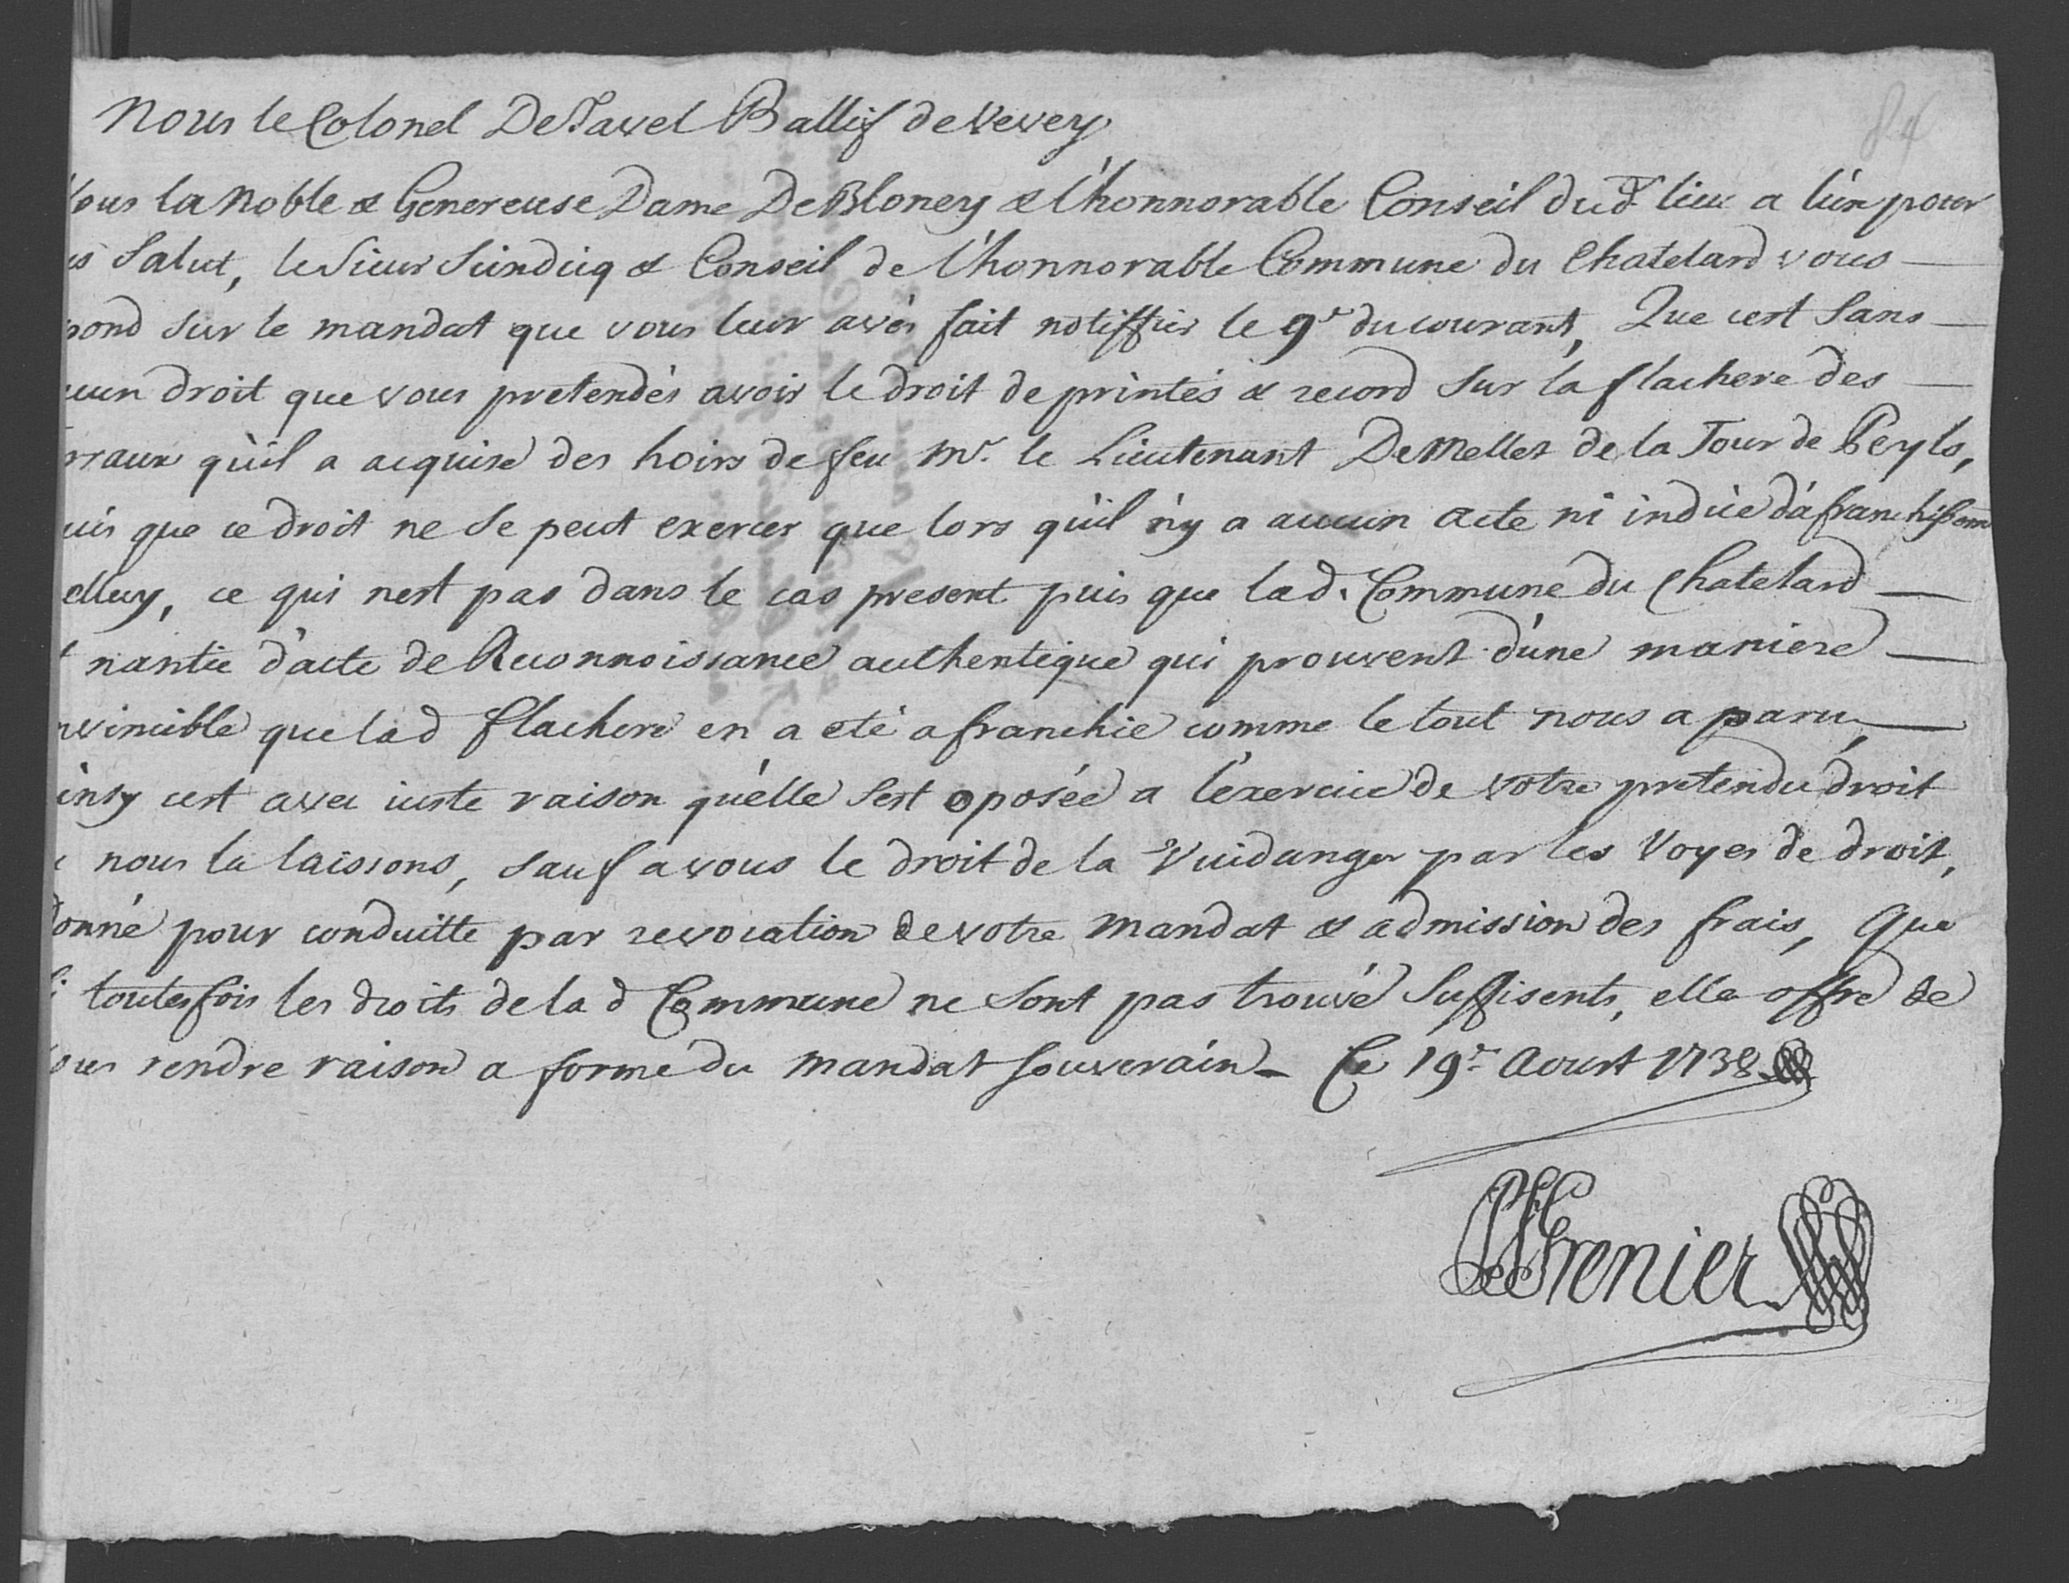 84
Nous le Colonel DeTavel Ballif de Vevey
Vous la Noble & Genereuse Dame De Bloney & l'honnorable Conseil dud.t lieu a l'un pour
s Salut, le Sieur Sindicq & Conseil de l'honnorable Commune du Chatelard vous
pond sur le mandat que vous leur avés fait notiffier le 9.e du courant, Que cest Sans
ucun droit que vous pretendés avoir le droit de printés & record Sur la flachere des
rraux qu'il a acquise des hoirs de feu Mr. le Lieutenant DeMellet de la Tour de Peyls,
uis que ce droit ne Se peut exercer que lors qu'il n'y a aucun acte ni indice d'afranchissem
elluy, ce qui nest pas dans le cas present puis que lad. Commune du Chatelard
t nantie d'acte de Reconnoissance authentique qui prouvent d'une maniere
nvincible que lad flachere en a eté afranchie comme le tout nous a paru,
insy cest avec iuste raison qu'elle Sest oposée a l'exercice de votre pretendu droit
nous la laissons, Sauf a vous le droit de la Vuidanger par les Voyes de droit,
donné pour conduitte par revocation de votre mandat & admission des frais, Que
i toutesfois les droits de la d Commune ne Sont pas trouvé Suffisents, elle offre de
vous rendre raison a forme du mandat Souverain. Ce 19.e Aoust 1738
Grenier